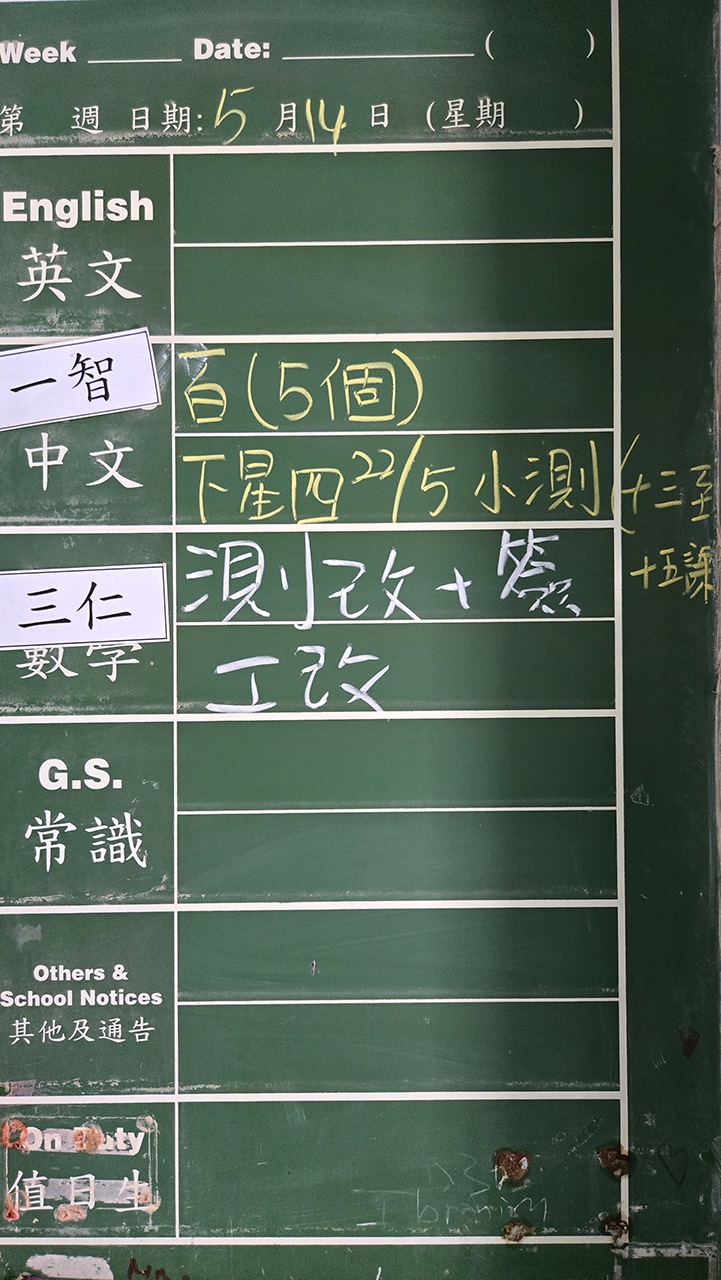 Week ______ Date: ____________ ( )
第 週 日期: 5 月 14 日 (星期 )
English
英文
一智
百(5個)
中文
下星四22/5 小測(十三至
十五課
三仁
測改+簽
數學
工改
G.S.
常識
Others &
School Notices
其他及通告
On Duty
值日生